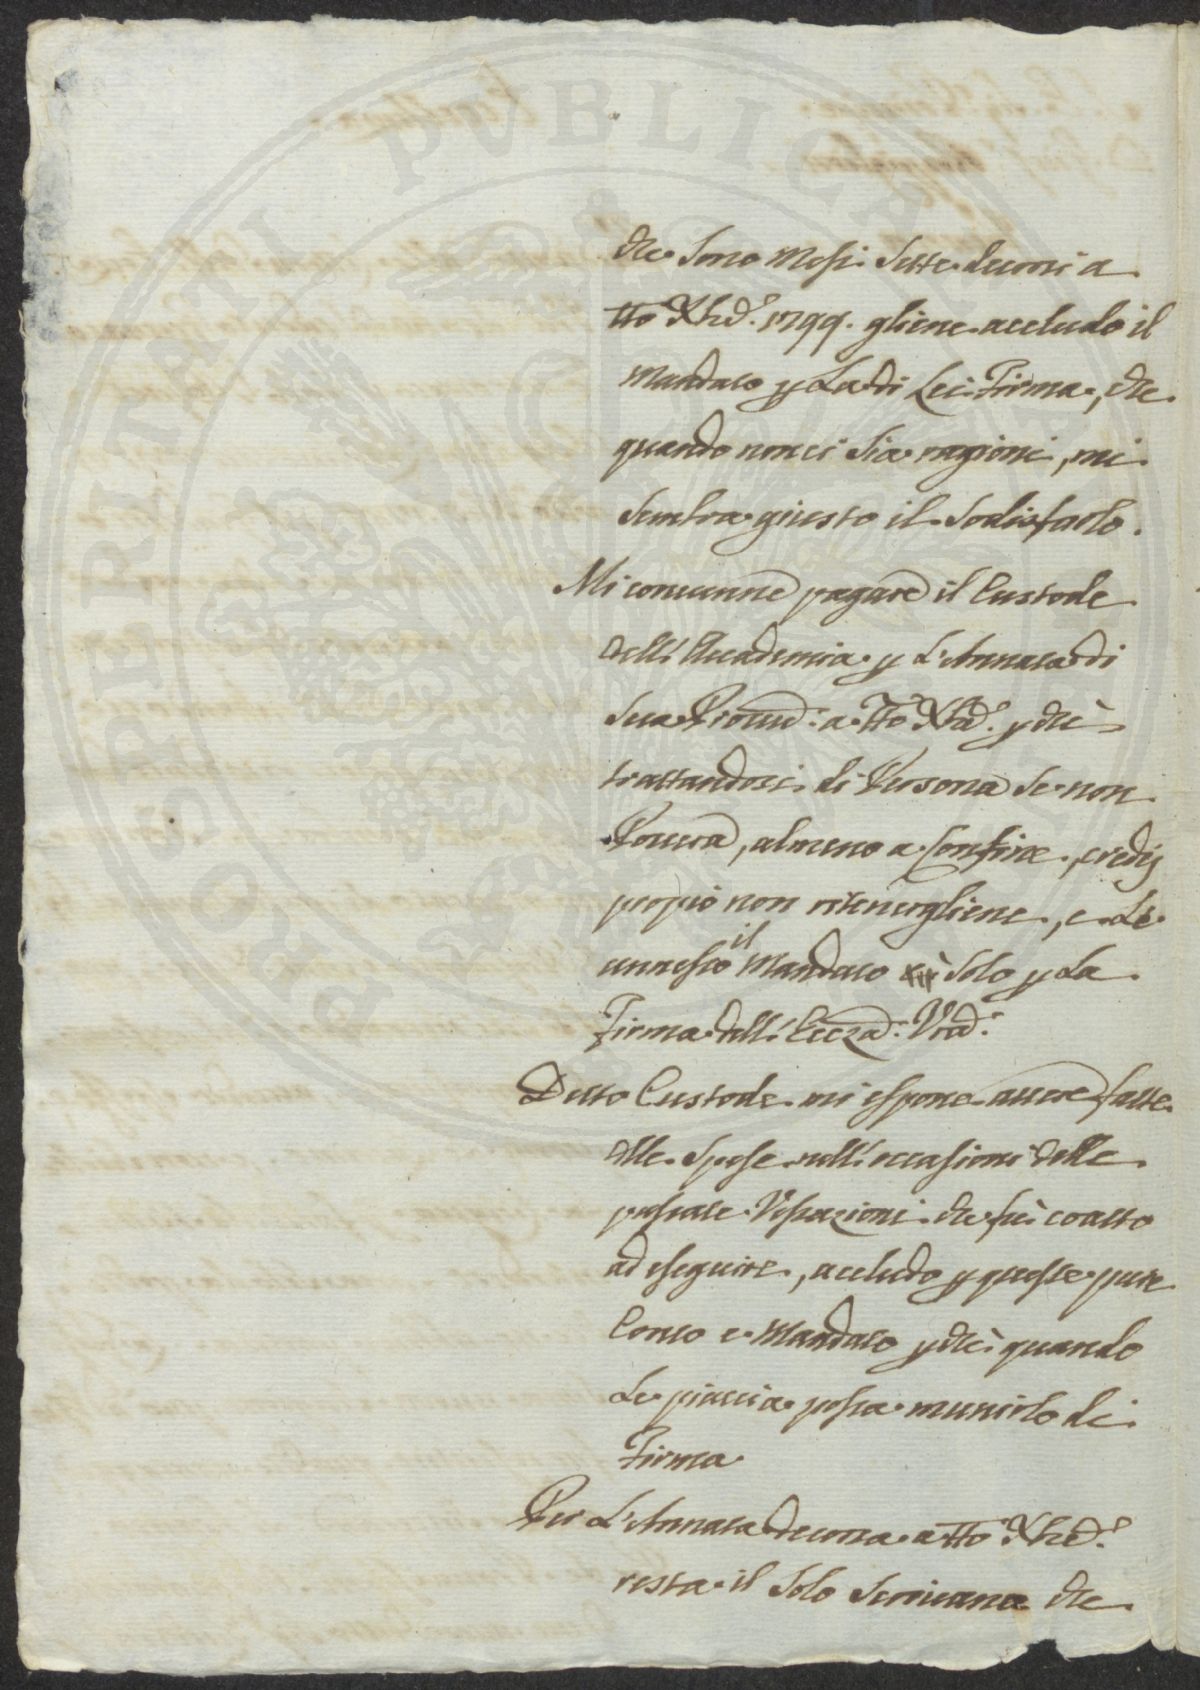 che sono Mesi sette decorsi a
tto Xbre. 1799. gliene accludo il
Mandato p La di Lei Firma, che
quando non ci sia ragioni, mi
sembra giusto il sodisfarlo.
Mi convenne pagare il Custode
dell'Accademia p L'Annata di
sua a tto Xbre. p che
trattandosi di Persona se non
Povera, almeno a confine, credei
propio non ritenergliene, e Le
annesso il Mandato solo p La
Firma dell'
Detto Custode mi espone avere fatte
alle spese nell'occasioni delle
passate che fu coatto
ad eseguire, accludo p queste pure
Conto e Mandato p che quando
Le piaccia possa munirlo di
Firma
Per L'Annata decorsa a tto Xbre.
resta il solo che